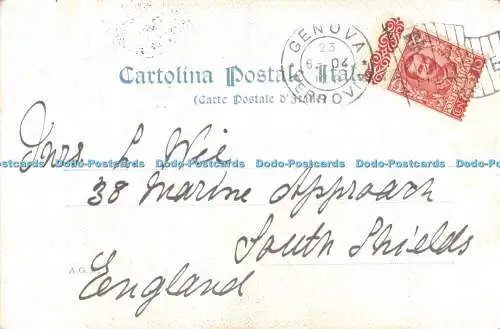 GENOVA
23
6 - 04
FERROVIA
Cartolina Postale Ital
(Carte Postale d'Italie)
Mrs L Wie
Dodo-Postcards Dodo-Postcards Dodo-Postcards Dodo-Postcards Dodo-Postcards
38 Marine Approach
South Shields
A.G.
England